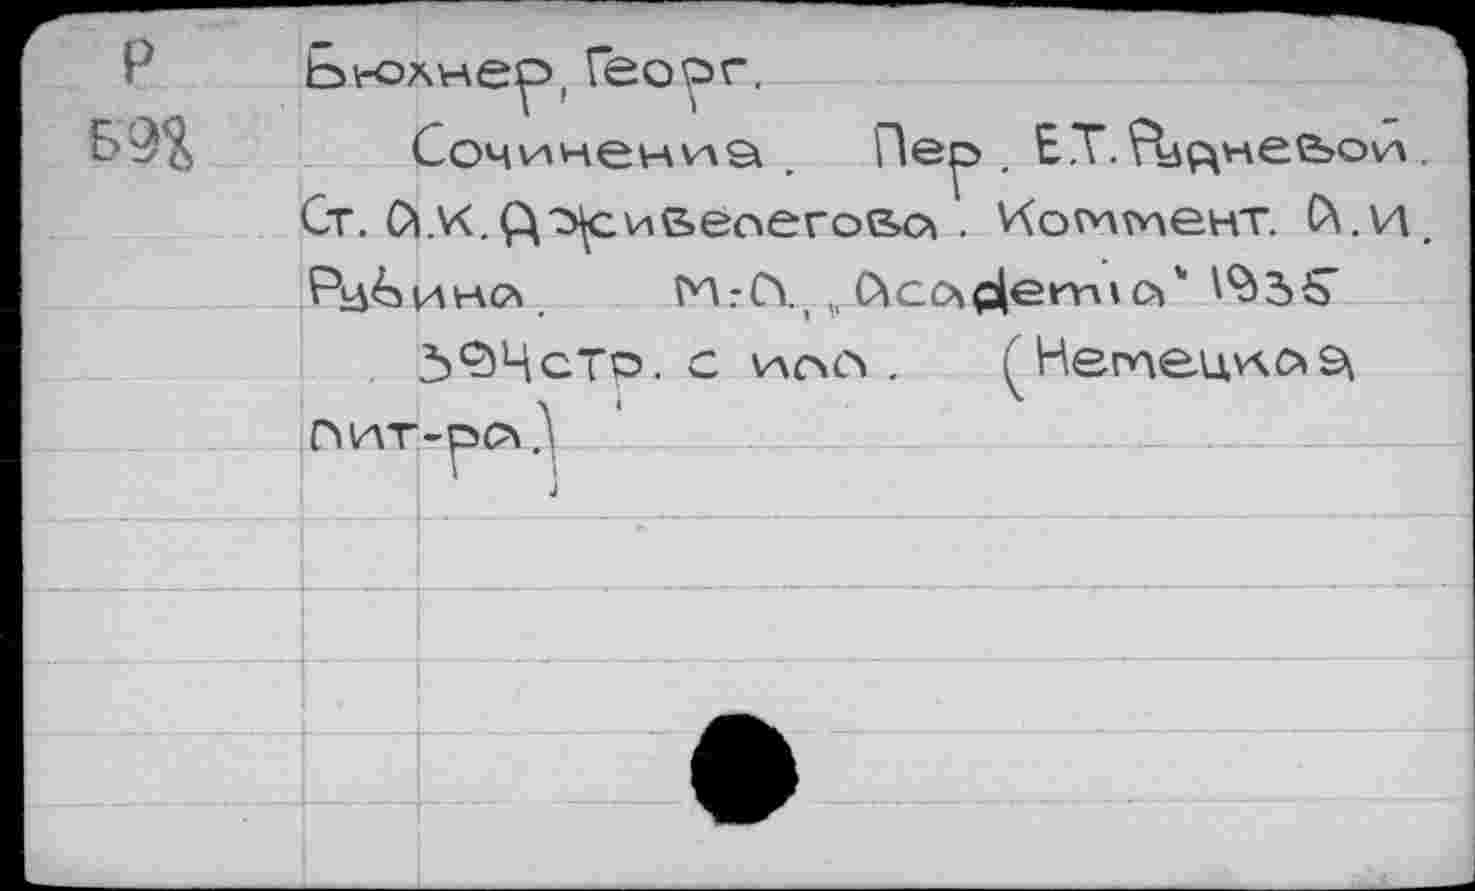 Р Бюхнер, Георг.
Б98 Сочинения. Пер. Е.Т. Рудневой.
Ст. А.К. Дживелегова. Коммент. А.И.
Рубина. М:Л., „Academia“ 1935
394стр. с илл. (Немецкая
лит-ра.)